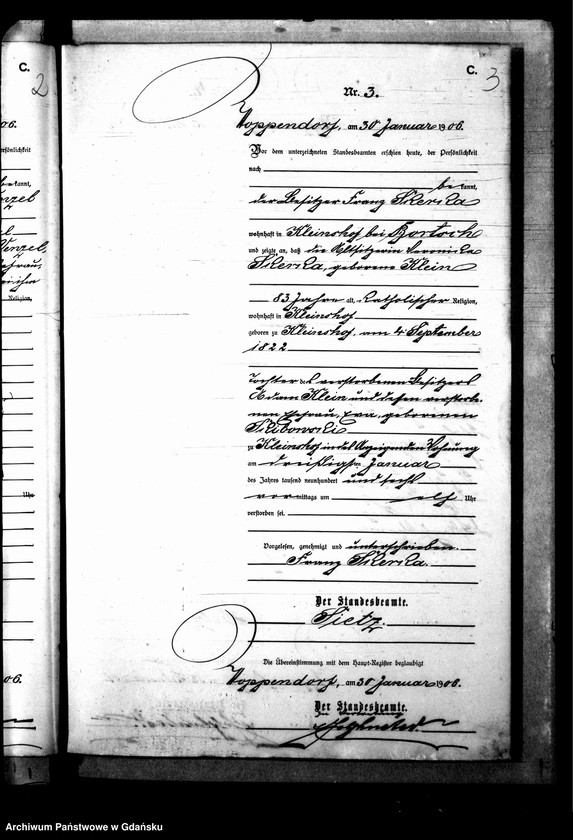 C.
2
06.
C.
3
Nr. 3.
Hoppendorf, am 30 Januar 1906.
Vor dem unterzeichneten Standesbeamten erschien heute, der Persönlichkeit
nach
bekannt,
der Besitzer Franz Skerka
wohnhaft in Kleinshof bei
und zeigte an, daß die Altsitzerin Veronika
Skerka, geborene Klein
83 Jahre alt, katholischer Religion,
wohnhaft in Kleinshof
geboren zu Kleinshof, am 4 September
1822
Tochter des verstorbenen Besitzers
Adam Klein und dessen verstorbe-
nen Ehefrau, Eva, geborenen
zu Kleinshof in des Anzeigenden Wohnung
am dreißigsten Januar
des Jahres tausend neunhundert und sechs
vormittags um elf Uhr
verstorben sei.
Vorgelesen, genehmigt und unterschrieben.
Franz Skerka.
Der Standesbeamte.
Tietz.
Die Übereinstimmung mit dem Haupt-Register beglaubigt
Hoppendorf, am 30 Januar 1906.
Der Standesbeamte.
Archiwum Państwowe w Gdańsku